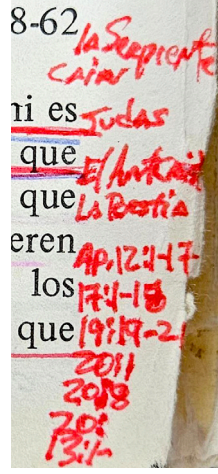 8-62
la Serpiente
Cain
ni es
Judas
que
El Anticri
que
La Bestia
eren
Ap. 12:1-17
los
17:1-18
que
19:19-21
2011
20:8
20: